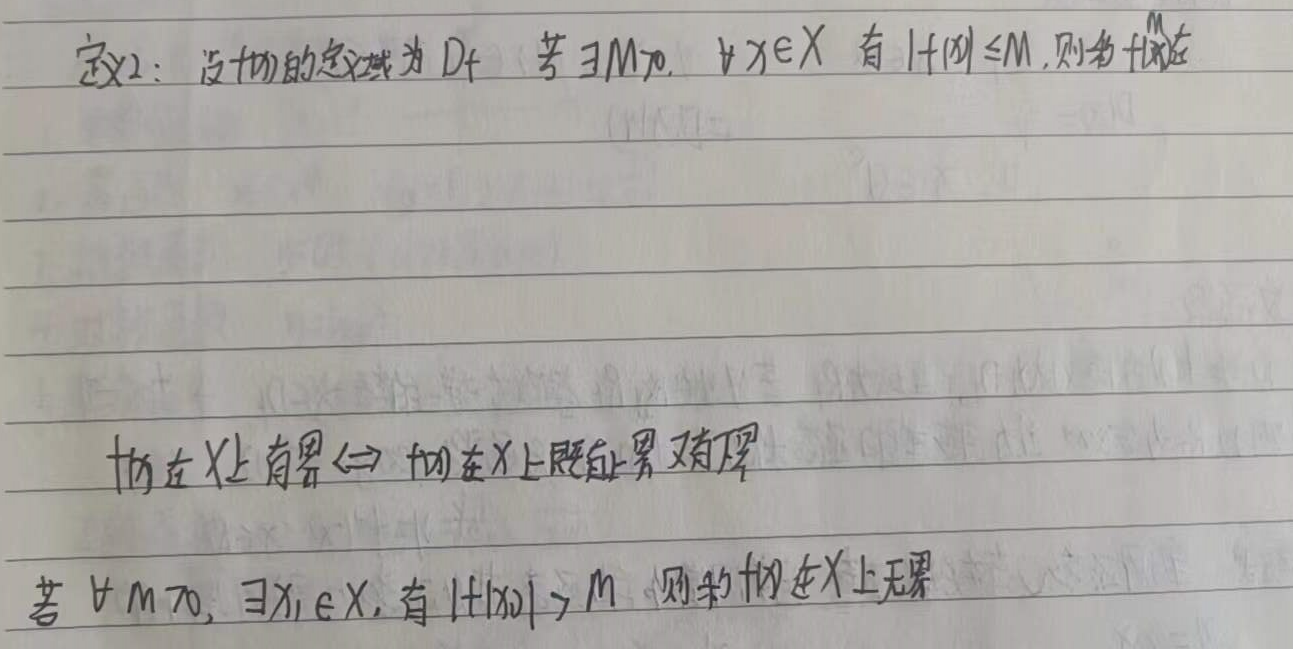 定义2: 设f(x)的定义域为 Df 若 ∃M>0. ∀x∈X 有 |f(x)|≤M,则称 f(x)在
f(x)在X上有界⇔f(x)在X上既有上界又有下界
若 ∀M>0, ∃x₁∈X, 有 |f(x₁)|>M 则称f(x)在X上无界